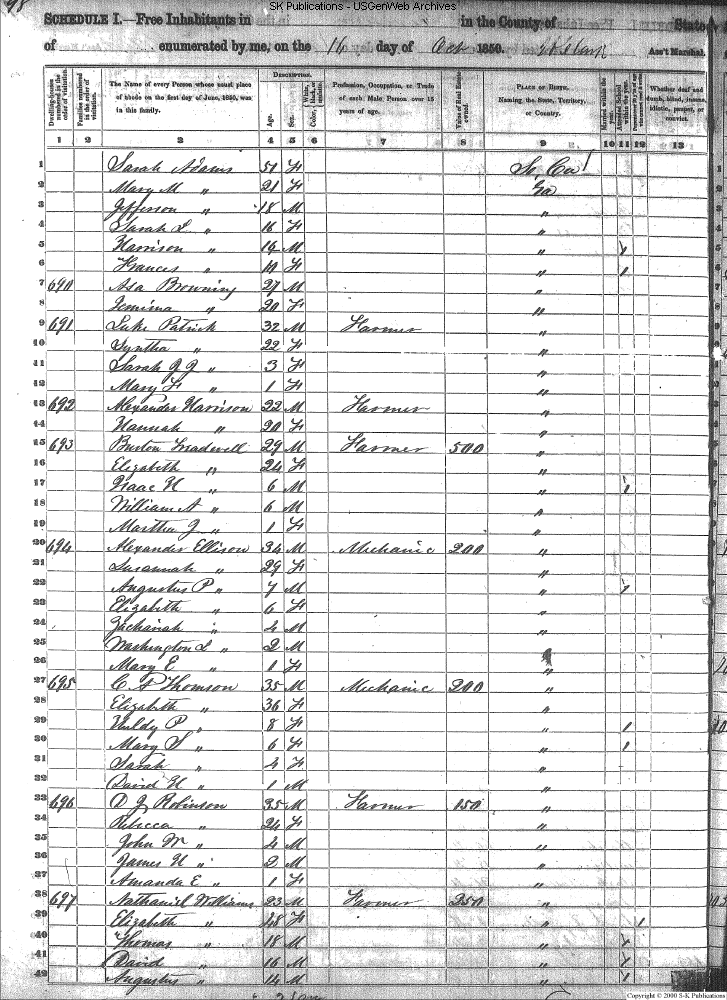 SK Publications - USGenWeb Archives
98
SCHEDULE I.—Free Inhabitants in in the County of State
of enumerated by me, on the 16 day of Oct 1850. Ass't Marshal.
Dwelling-houses numbered in the order of visitation.
Families numbered in the order of visitation.
The Name of every Person whose usual place of abode on the first day of June, 1850, was in this family.
DESCRIPTION.
Age.
Sex.
Color, White, black, or mulatto.
Profession, Occupation, or Trade of each Male Person over 15 years of age.
Value of Real Estate owned.
PLACE OF BIRTH. Naming the State, Territory, or Country.
Married within the year.
Attended School within the year.
Whether deaf and dumb, blind, insane, idiotic, pauper, or convict.
1 2 3 4 5 6 7 8 9 10 11 12 13
1 Sarah Adams 51 F So, Ca 1
2 Mary M " 21 F Ga 2
3 Jefferson " 18 M " 3
4 Sarah L " 16 F " 4
5 Harrison " 14 M " 1 5
6 Frances " F " 1 6
7 690 Asa Browning 27 M " 7
8 Jemima " 20 F " 8
9 691 Luke Patrick 32 M Farmer " 9
10 Syntha " 22 F " 10
11 Sarah J J " 3 F " 11
12 Mary F " 1 F " 12
13 692 Alexander Harrison 22 M Farmer " 13
14 Hannah " 20 F " 14
15 693 Burton Treadwell 29 M Farmer 500 " 15
16 Elizabeth " 24 F " 16
17 Isaac H " 6 M " 1 17
18 William A " 6 M " 18
19 Martha J " 1 F " 19
20 694 Alexander Ellison 34 M Mechanic 200 " 20
21 Susannah " 29 F " 21
22 Augustus P " 7 M " 1 22
23 Elizabeth " 6 F " 23
24 Zachariah " 4 M " 24
25 Washington L " 2 M " 25
26 Mary E " 1 F " 26
27 695 C A Thomson 35 M Mechanic 200 " 27
28 Elizabeth " 36 F " 28
29 Huldy P " 8 F " 1 29
30 Mary S " 6 F " 1 30
31 Sarah " 4 F " 31
32 David H " 1 M " 32
33 696 D J Robinson 25 M Farmer 150 " 33
34 Rebecca " 24 F " 34
35 John M " 4 M " 35
36 James H " 2 M " 36
37 Amanda E " 1 F " 37
38 697 Nathaniel Williams 23 M Farmer 250 " 38
39 Elizabeth " 48 F " 1 39
40 Thomas " 18 M " 1 40
41 David " 16 M " 1 41
42 Augustus " 14 M " 1 42
Copyright © 2000 S-K Publications